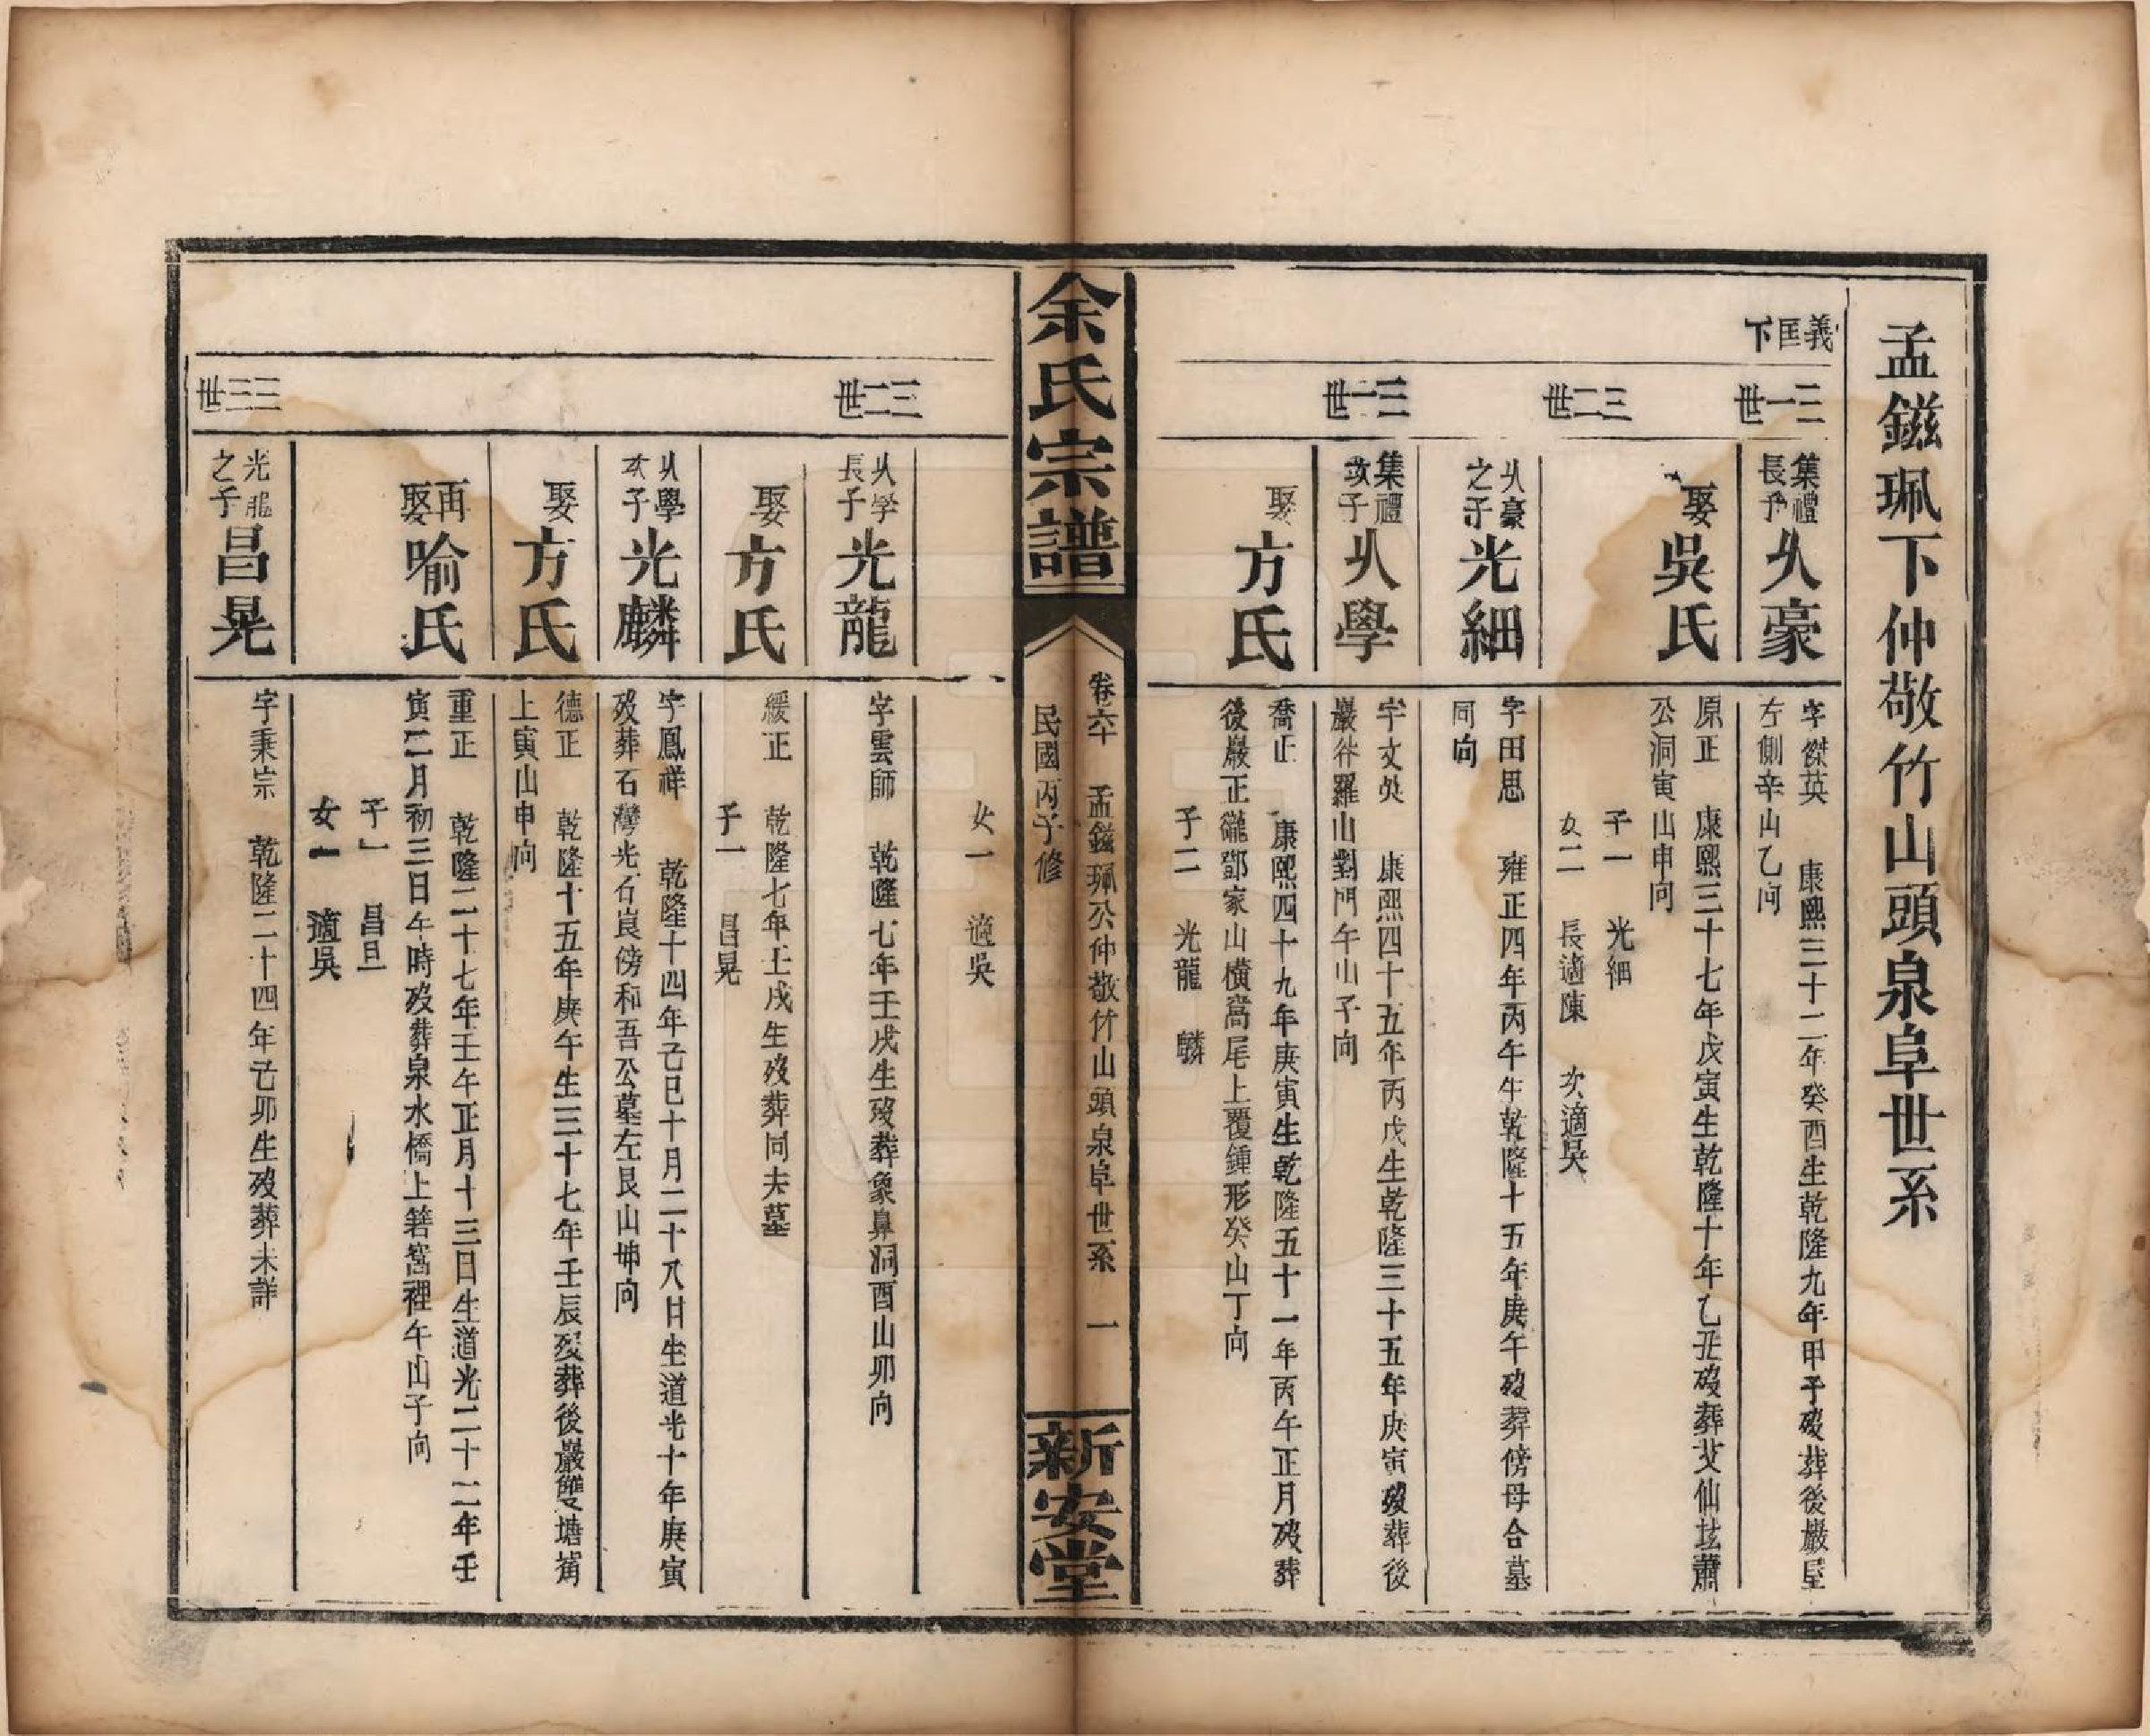 孟鎡珮下仲敬竹山頭泉阜世系
義匡下
三一世
集禮長子
㠯豪
字傑英 康熙三十二年癸酉生乾隆九年甲子歿葬後巖屋
左側辛山乙向
娶吳氏
原正 康熙三十七年戊寅生乾隆十年乙丑歿葬艾仙坳蕭
公洞寅山申向
子一 光細
女二 長適陳 次適吳
三二世
㠯豪之子
光細
字田思 雍正四年丙午生乾隆十五年庚午歿葬傍母合墓
同向
三一世
集禮次子
㠯學
字文奂 康熙四十五年丙戌生乾隆三十五年庚寅歿葬後
巖徃羅山對門午山子向
娶方氏
喬正 康熙四十九年庚寅生乾隆五十一年丙午正月歿葬
後巖正壠鄧家山橫窩尾上覆鍾形癸山丁向
子二 光龍 麟
余氏宗譜
卷六十 孟鎡珮公仲敬竹山頭泉阜世系 一
民國丙子修
新安堂
女一 適吳
三二世
㠯學長子
光龍
字雲師 乾隆七年壬戌生歿葬象鼻洞酉山卯向
娶方氏
緩正 乾隆七年壬戌生歿葬同夫墓
子一 昌晃
㠯學次子
光麟
字鳳祥 乾隆十四年己巳十月二十八日生道光十年庚寅
歿葬石灣光石崀傍和吾公墓左艮山坤向
娶方氏
德正 乾隆十五年庚午生三十七年壬辰歿葬後巖雙塘塝
上寅山申向
再娶喻氏
重正 乾隆二十七年壬午正月十三日生道光二十二年壬
寅二月初三日午時歿葬泉水橋上箬窩裡午山子向
子一 昌旦
女一 適吳
三三世
光龍之子
昌晃
字秉宗 乾隆二十四年己卯生歿葬未詳